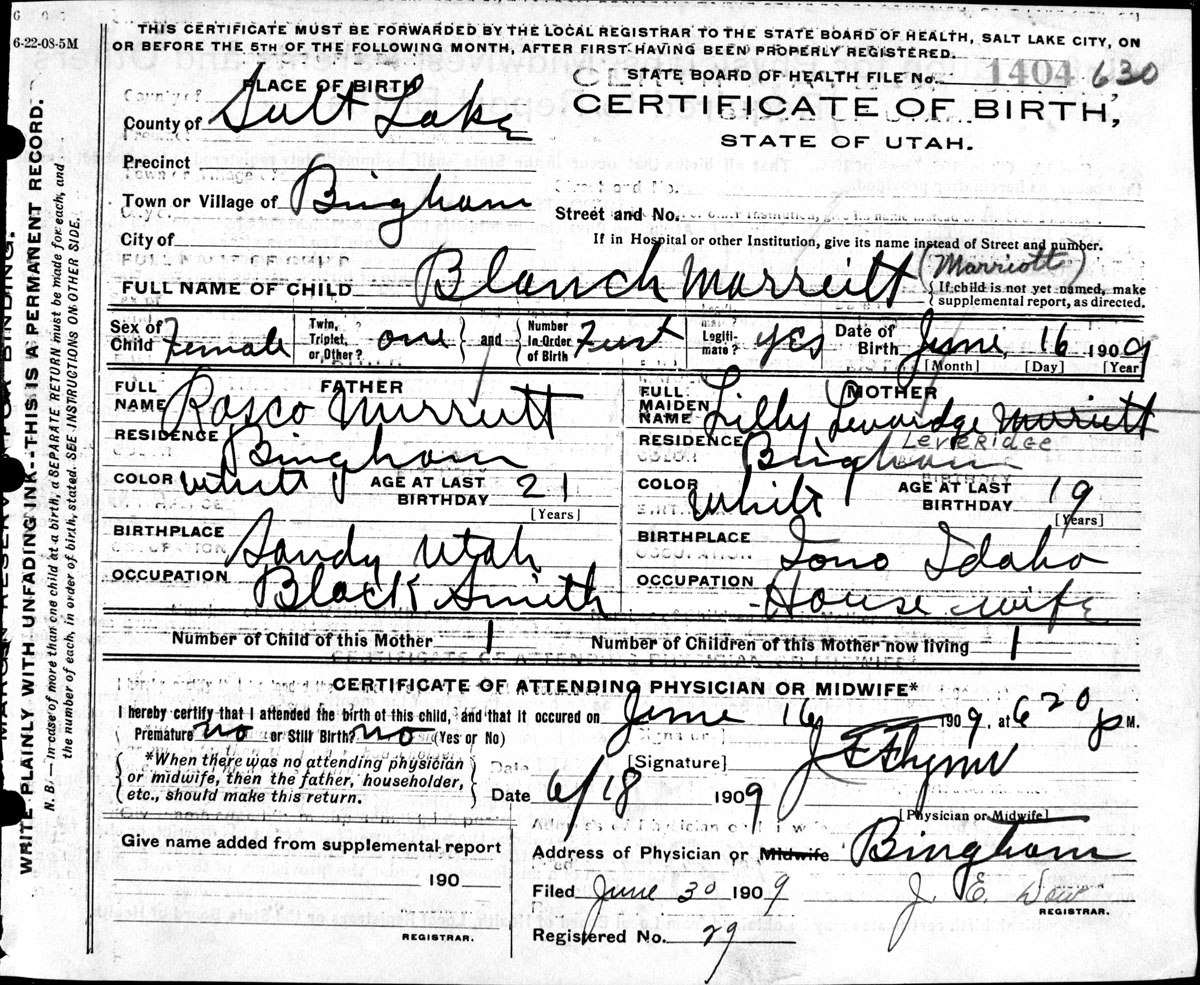 6-22-08-5M
THIS CERTIFICATE MUST BE FORWARDED BY THE LOCAL REGISTRAR TO THE STATE BOARD OF HEALTH, SALT LAKE CITY, ON
OR BEFORE THE 5TH OF THE FOLLOWING MONTH, AFTER FIRST HAVING BEEN PROPERLY REGISTERED.
STATE BOARD OF HEALTH FILE No. 1404 630
PLACE OF BIRTH
CERTIFICATE OF BIRTH,
County of Salt Lake
STATE OF UTAH.
Precinct
Town or Village of Bingham
Street and No.
City of
If in Hospital or other Institution, give its name instead of Street and number.
FULL NAME OF CHILD Blanch Marreitt (Marriott)
{ If child is not yet named, make
supplemental report, as directed.
Sex of Child Female Twin, Triplet, or Other? one } and { Number In Order of Birth First Legiti- mate? yes Date of Birth June, 16 1909
[Month] [Day] [Year]
FATHER
FULL NAME Rosco Mirriett
RESIDENCE Bingham
COLOR White AGE AT LAST BIRTHDAY 21
[Years]
BIRTHPLACE Sandy Utah
OCCUPATION Black Smith
MOTHER
FULL MAIDEN NAME Lilly Levoridge Mirriett
Leveridge
RESIDENCE Bingham
COLOR White AGE AT LAST BIRTHDAY 19
[Years]
BIRTHPLACE Iono Idaho
OCCUPATION House wife
Number of Child of this Mother 1 Number of Children of this Mother now living 1
CERTIFICATE OF ATTENDING PHYSICIAN OR MIDWIFE*
I hereby certify that I attended the birth of this child, and that it occured on June 16 1909, at 6 20 p M.
Premature no or Still Birth? no (Yes or No)
{ *When there was no attending physician
or midwife, then the father, householder,
etc., should make this return. }
[Signature] J E Flynn
Date 6/18 1909
[Physician or Midwife]
Give name added from supplemental report
190
REGISTRAR.
Address of Physician or Midwife Bingham
Filed June 30 1909 J. E. Dow
REGISTRAR.
Registered No. 29
WRITE PLAINLY WITH UNFADING INK--THIS IS A PERMANENT RECORD.
N. B.—In case of more than one child at a birth, a SEPARATE RETURN must be made for each, and
the number of each, in order of birth, stated. SEE INSTRUCTIONS ON OTHER SIDE.